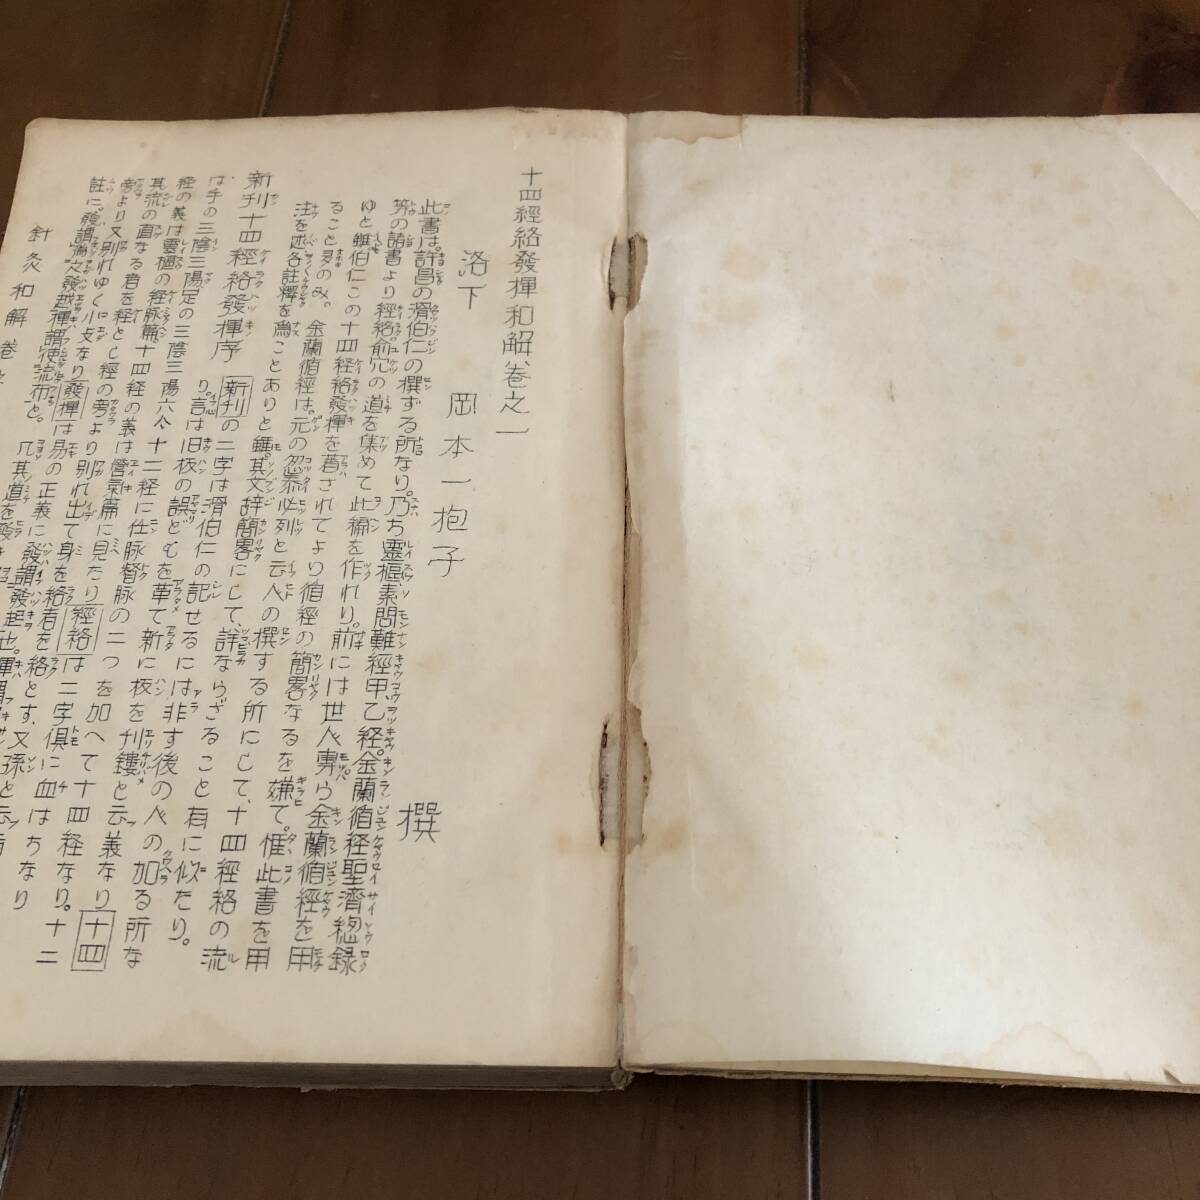 十四經絡發揮和解卷之一
洛下 岡本一抱子 撰
此書は。許昌の滑伯仁の撰ずる所なり。乃ち靈樞、素問、難經、甲乙経。金蘭循経聖濟総録
等の諸書より経絡俞穴の道を集めて此編を作れり。前には世人專ら金蘭循經を用
ゆと雖伯仁この十四経絡發揮を著されてより循經の簡畧なるを嫌て。惟此書を用
ること多のみ。金蘭循經は。元の忽泰必列と云人の撰する所にして、十四經絡の流
注を述各註釋を為ことありと雖。其文辞簡畧にして、詳ならざること有に似たり。
新刋十四經絡發揮序 新刋の二字は滑伯仁の記せるには非す後の人の加る所な
り。言は旧板の誤どもを革て新に板を刋鏤と云義なり十四
は、手の三陰三陽足の三陰三陽六合十二経に任脉督脉の二つを加へて十四経なり。十二
経の義は靈樞の経脉篇。十四経の義は營氣篇に見たり經絡は二字俱に血はちなり
其流の直なる者を経とし経の旁より別れ出て身を絡者を絡とす、又孫と云
旁より又別れゆく小支なり發揮は易の正義に發謂發起也。揮謂
註に。發謂為之發越揮謂使流布と。凡其道を發き
針灸和解卷